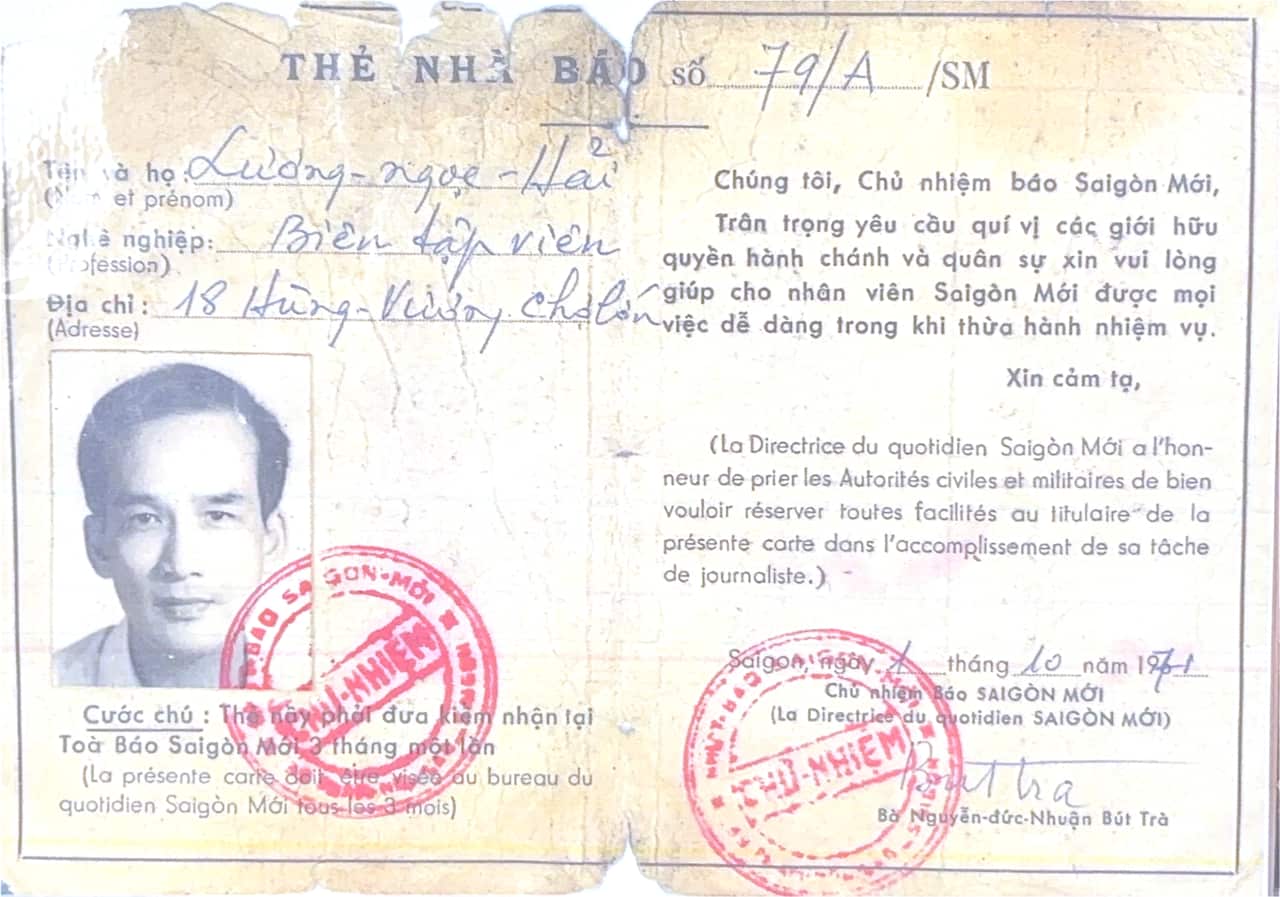 THẺ NHÀ BÁO số 79/A /SM
Tên và họ: Lương-ngọc-Hải
(Nom et prénom)
Nghề nghiệp: Biên tập viên
(Profession)
Địa chỉ: 18 Hùng-Vương Chợlớn
(Adresse)
BÁO SAIGON-MỚI
CHỦ-NHIỆM
Cước chú : Thẻ này phải đưa kiểm nhận tại
Toà Báo Saigòn Mới 3 tháng một lần
(La présente carte doit être visée au bureau du
quotidien Saigòn Mới tous les 3 mois)
Chúng tôi, Chủ nhiệm báo Saigòn Mới,
Trân trọng yêu cầu quí vị các giới hữu
quyền hành chánh và quân sự xin vui lòng
giúp cho nhân viên Saigòn Mới được mọi
việc dễ dàng trong khi thừa hành nhiệm vụ.
Xin cảm tạ,
(La Directrice du quotidien Saigòn Mới a l'hon-
neur de prier les Autorités civiles et militaires de bien
vouloir réserver toutes facilités au titulaire de la
présente carte dans l'accomplissement de sa tâche
de journaliste.)
Saigon, ngày 1 tháng 10 năm
Chủ nhiệm Báo SAIGÒN MỚI
(La Directrice du quotidien SAIGÒN MỚI)
CHỦ-NHIỆM
Bút Trà
Bà Nguyễn-đức-Nhuận Bút Trà